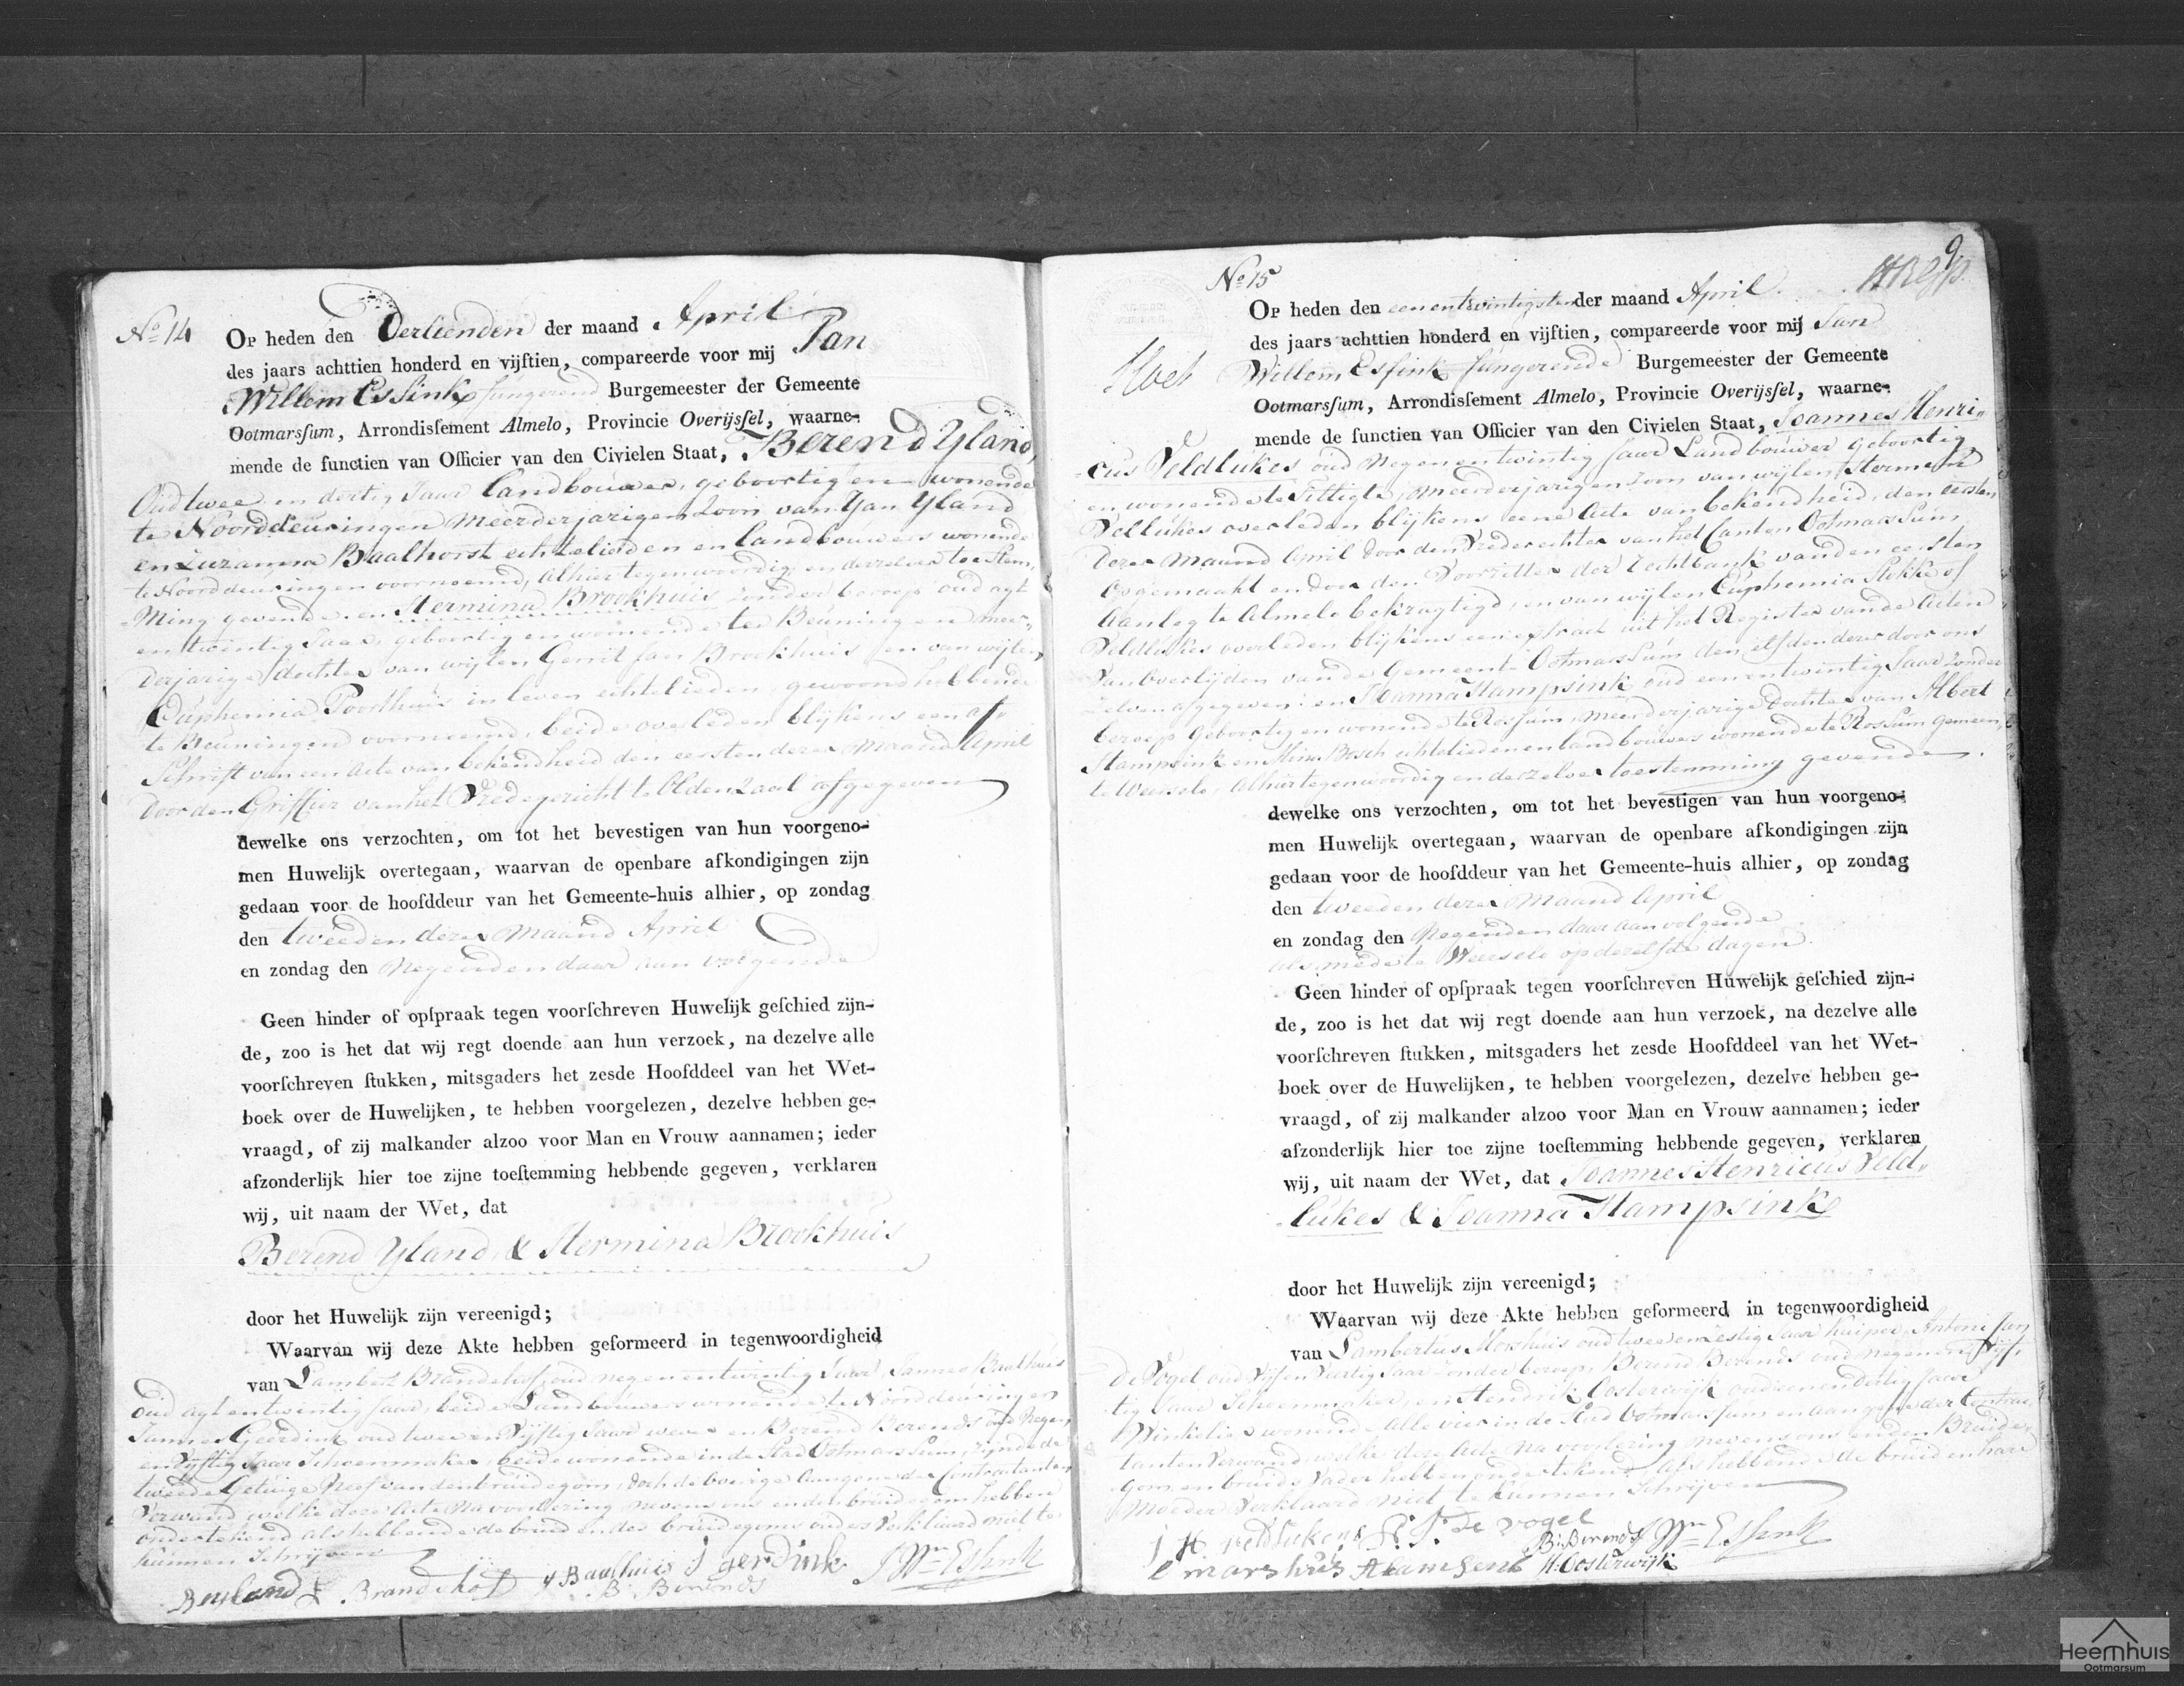 No 14
Op heden den Dertienden der maand April
des jaars achttien honderd en vijftien, compareerde voor mij Jan
Willem Essink fungerend Burgemeester der Gemeente
Ootmarsſum, Arrondisſement Almelo, Provincie Overijsſel, waarne-
mende de functien van Officier van den Civielen Staat, Berend Yland,
Oud twee en dertig Jaar Landbouwer, geboortig en wonende
te Noorddeuringen meerderjarigen Zoon van Jan Yland
en Zuzanna Baalhorst echtelieden en landbouwers wonende
te Noorddeuringen voornoemd, alhier tegenwoordig en derzelver toestem,
ming gevende. en Hermina Brookhuis zonder beroep oud agt
en twentig Jaar, geboortig en woonende te Beuningen meer,
derjarige dochter van wijlen Gerrit Jan Brookhuis en van wijlen
Euphemia Poorthuis in leven echtelieden, gewoond hebbende
te Beuningen voornoemd, beide overleden blijkens een af,
schrift van een acte van bekendheid den eersten dezer Maand April
door den Griffier van het Vredegericht te Oldenzaal afgegeven
dewelke ons verzochten, om tot het bevestigen van hun voorgeno-
men Huwelijk overtegaan, waarvan de openbare afkondigingen zijn
gedaan voor de hoofddeur van het Gemeente-huis alhier, op zondag
den tweeden dezer Maand April
en zondag den Negenden daar aan volgende
Geen hinder of opſpraak tegen voorſchreven Huwelijk geſchied zijn-
de, zoo is het dat wij regt doende aan hun verzoek, na dezelve alle
voorſchreven ſtukken, mitsgaders het zesde Hoofddeel van het Wet-
boek over de Huwelijken, te hebben voorgelezen, dezelve hebben ge-
vraagd, of zij malkander alzoo voor Man en Vrouw aannamen; ieder
afzonderlijk hier toe zijne toeſtemming hebbende gegeven, verklaren
wij, uit naam der Wet, dat
Berend Yland, & Hermina Brookhuis
door het Huwelijk zijn vereenigd;
Waarvan wij deze Akte hebben geformeerd in tegenwoordigheid
van Lambert Brandehof oud negenentwintig Jaar Jannes Baalhuis
oud agtentwentig Jaar, beide Landbouwers wonende te Noorddeuringen
Jannes Geerdink oud twee en Vijftig Jaar wever en Berend Berends oud Negen,
en Vijftig Jaar Schoenmaker, beide wonende in de Stad Ootmarssum, zijnde de
tweede Getuige Neef van den bruidegom, doch de overige aangene der Contractanten
Verwand welke deze Acte Na voorlezing nevens ons en den bruidegom hebben
ondertekend als hebbende de bruid en des bruidegoms ouders Verklaard niet te
kunnen Schrijven
B yland L Brandehof J Baalhuis J gerdink JWm Essink
B: Berends
9
No 15
Op heden den eenentwintigsten der maand April
des jaars achttien honderd en vijftien, compareerde voor mij Jan
Willem Essink fungerende Burgemeester der Gemeente
Ootmarsſum, Arrondisſement Almelo, Provincie Overijsſel, waarne-
mende de functien van Officier van den Civielen Staat, Joannes Henri,,
cus Veldlukes oud Negenentwintig Jaar Landbouwer geboortig
en wonende te Tilligte, meerderjarigen Zoon van wijlen Herman
Vellukes overleden blijkens eene Acte van bekendheid, den eersten
dezer maand April door den Vrederechter van het Canton Ootmarssum
Opgemaakt en door den Voorzitter der Rechtbank van den eersten
Aanleg te Almelo bekragtigd, en van wijlen Euphemia Stokke of
Veldlukes overleden blijkens een extract uit het Register van de Acten
Van Overlijden van de Gemeente Ootmarssum den elfden dezer door ons
zelven afgegeven: en Joanna Stampsink oud eenentwintig Jaar zonder
beroep Geboortig en wonende te Rossum, meerderjarige dochter van Albert
Stampsink en Bosch echtelieden en landbouwers wonende te Rossum Gemeen,
te Weerselo, Alhier tegenwoordig en derzelver toestemming gevende
dewelke ons verzochten, om tot het bevestigen van hun voorgeno-
men Huwelijk overtegaan, waarvan de openbare afkondigingen zijn
gedaan voor de hoofddeur van het Gemeente-huis alhier, op zondag
den tweeden dezer Maand April
en zondag den Negenden daar aan volgende
als mede te Weerselo op dezelfde dagen.
Geen hinder of opſpraak tegen voorſchreven Huwelijk geſchied zijn-
de, zoo is het dat wij regt doende aan hun verzoek, na dezelve alle
voorſchreven ſtukken, mitsgaders het zesde Hoofddeel van het Wet-
boek over de Huwelijken, te hebben voorgelezen, dezelve hebben ge-
vraagd, of zij malkander alzoo voor Man en Vrouw aannamen; ieder
afzonderlijk hier toe zijne toeſtemming hebbende gegeven, verklaren
wij, uit naam der Wet, dat Joannes Henricus Veld,,
lukes & Joanna Stampsink
door het Huwelijk zijn vereenigd;
Waarvan wij deze Akte hebben geformeerd in tegenwoordigheid
van Lambertus Morshuis oud twee en zestig Jaar kuiper, Antoni Jan
de Vogel oud Vijf en Veertig Jaar zonder beroep, Berend Berends oud Negen en Vijf,
tig Jaar Schoenmaker, en Hendrik Oosterwijk oud eenendertig Jaar
Winkelier wonende alle vier in de Stad Ootmarssum en aan gene der Contrac,
tanten Verwand welke deze Acte Na voorlezing nevens ons en den Bruide,
gom en bruids Vader hebben ondertekend, als hebbende de bruid en hare
Moeder Verklaard niet te kunnen Schrijven
J H veldlukens A. J. de Vogel B: Berends JWm Essink
L marshuis H: Oosterwijk
Heemhuis
Ootmarsum